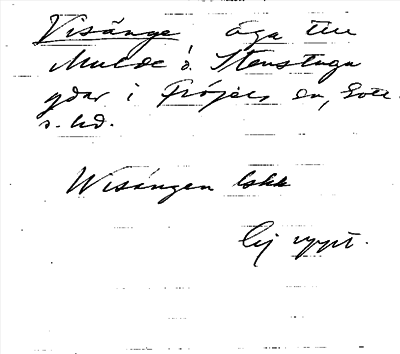 Visänge äga till
Mulde o. Stenstuga
gdar i Fröjels sn, Gotl.
s. hd.
Wisängen lskk
Ej uppt.